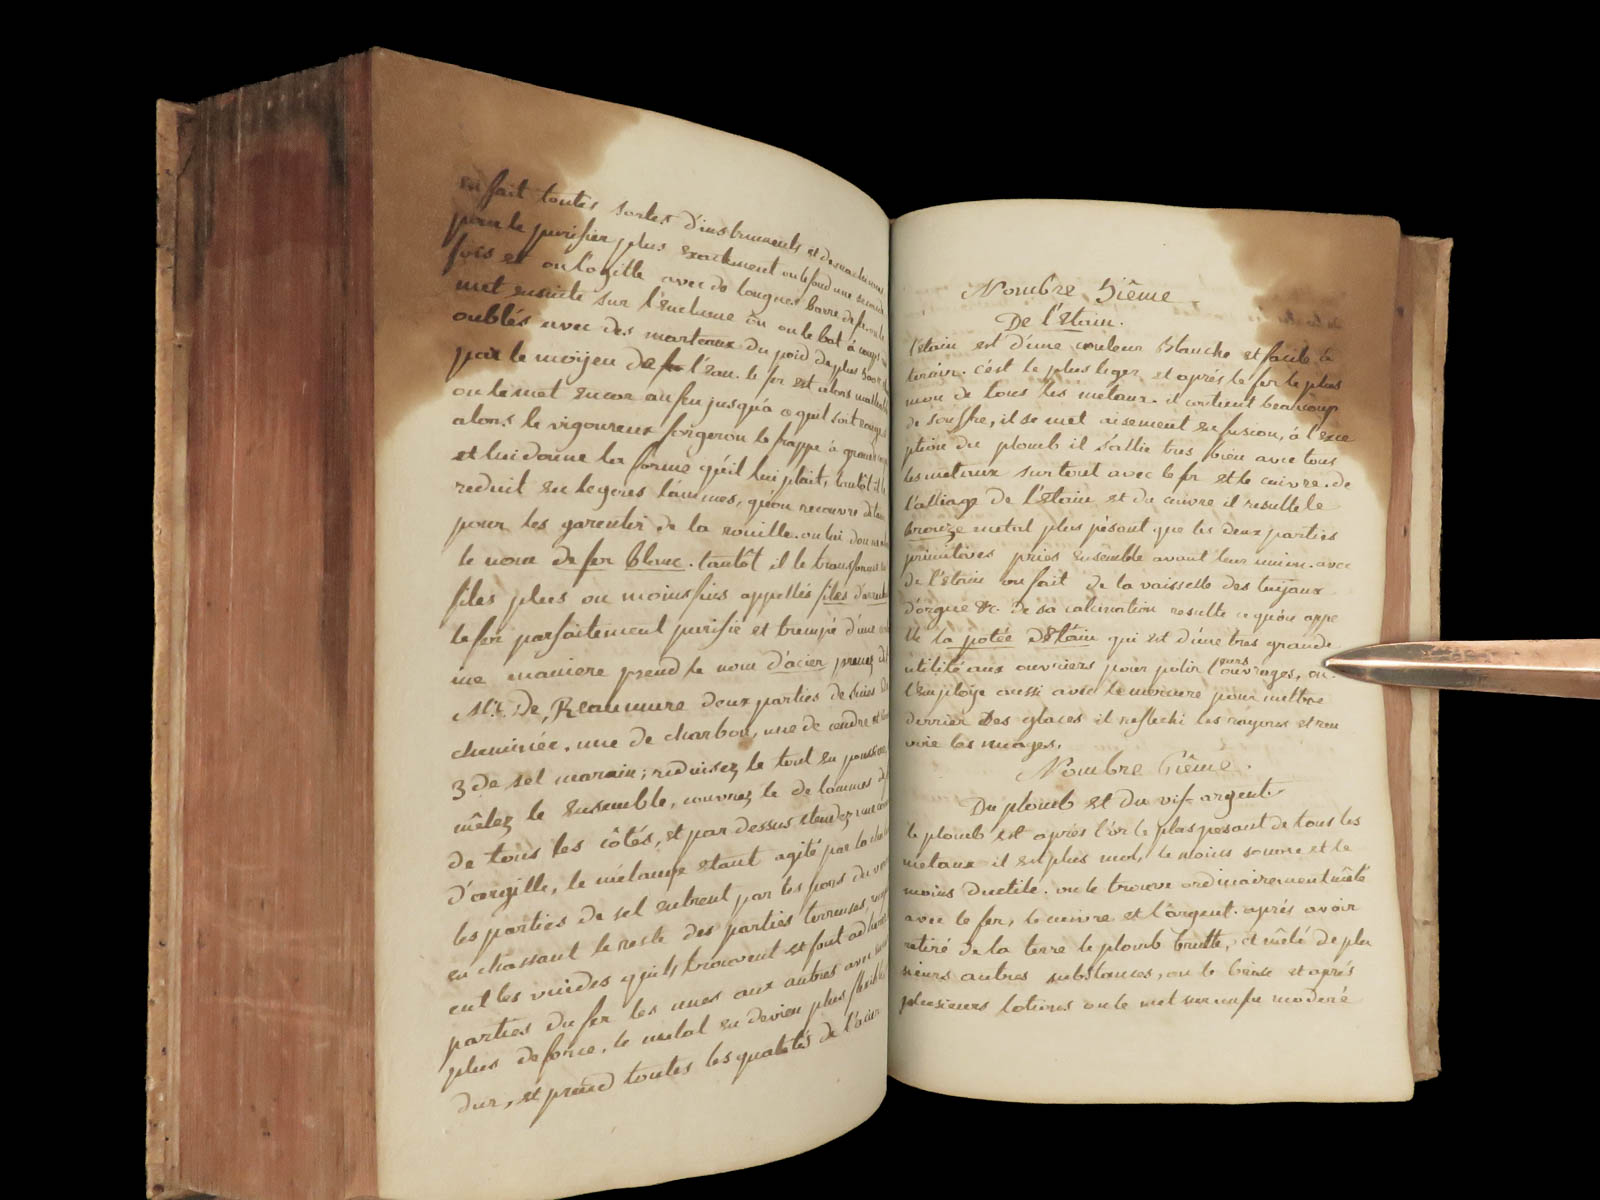 en fait toutes sortes d'instruments et
pour le purifier plus exactement on le fond une seconde
fois et on l'ogitte avec de longues barre de fer. on le
met ensuite sur l'enclume où on le bat à coups
oublés avec des marteaux du poid de plus
par le moÿen de l'eau. le fer est alors malleable
on le met encor au feu jusqu'a ce quil soit rouge
alors le vigoureux forgeron le frappe à grands
et lui donne la forme qu'il lui plait, tantôt il le
reduit en legeres lammes, qu'on recouvre
pour les garentir de la rouille. on lui donne
le nom de fer blanc. tantôt il le transforme en
files plus ou moins fins appellés files d'
le fer parfaitement purifié et trempé d'une
ine maniere prend le nom d'acier prenez
Mr. De Reaumure deux parties de suies
cheminée, une de charbon, une de cendre et
3 de sel marain; reduisez le tout en poussiere,
mêlez le ensemble, couvrez le de lammes
de tous les côtés, et par dessus etendez une
d'argille, le mélange etant agité par la
les parties de sel entrent par les pores du
en chassant le reste des parties terreuses,
ent les vuides qu'ils trouvent et font
parties du fer les unes aux autres avec
plus de force. le metal en devien plus
dur, et prend toutes les qualités de l'acier
Nombre 5ième
De l'Etain.
l'etain est d'une couleur Blanche et facile à
ternir. c'est le plus leger et aprés le fer le plus
mou de tous les metaux. il contient beaucoup
de souffre, il se met aisement en fusion, à l'exce
ption du plomb il s'allie tres bien avec tous
les metaux surtout avec le fer et le cuivre. de
l'alliage de l'etain et du cuivre il resulte le
bronze metal plus pésant que les deux parties
primitives prises ensemble avant leur union. avec
de l'etain on fait de la vaisselle des tuÿaux
d'orgue &c. de sa calcination resulte ce qu'on appe
lle la potée d'Etain qui est d'une tres grande
utilité aux ouvriers pour polir leurs ouvrages, on
l'emploÿe aussi avec le mercure pour mettre
derrier des glaces il reflechi les raÿons et ren
voie les images.
Nombre 6ième.
Du plomb et du vif-argent.
le plomb est aprés l'or le plus pesant de tous les
metaux il est plus mol, le moins sonore et le
moins ductile. on le trouve ordinairement mêlé
avec le fer, le cuivre et l'argent. aprés avoir
retiré de la terre le plomb brutte, et mêlé de plu
sieurs autres substances, on le brise et aprés
plusieurs lotions on le met sur un feu moderé